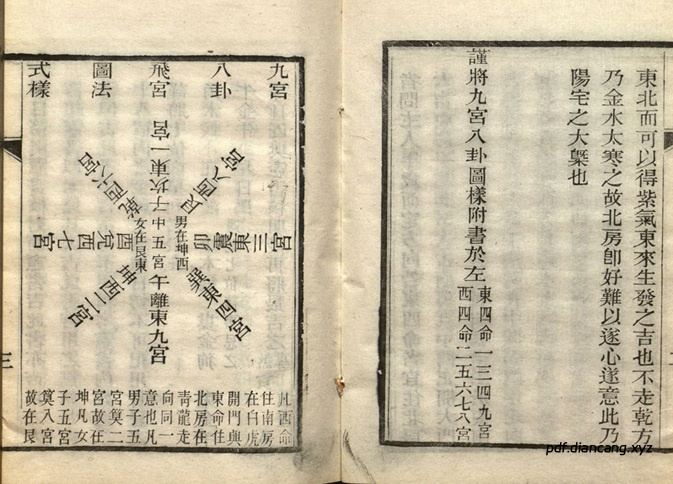 東北而可以得紫氣東來生發之吉也不走乾方
乃金水太寒之故北房卽好難以遂心遂意此乃
陽宅之大槩也
謹將九宮八卦圖樣附書於左
東四命一三四九宮
西四命二五六七八宮
九宮
八卦
飛宮
圖法
式樣
子坎東一宮
艮西八宮
卯震東三宮
巽東四宮
午離東九宮
坤西二宮
酉兌西七宮
乾西六宮
中五宮
男在坤西
女在艮東
凡西命
住南房
在白虎
開門與
東命住
北房在
青龍走
向同一
意也凡
男子五
宮筭二
宮故在
坤凡女
子五宮
筭八宮
故在艮
pdf.diancang.xyz